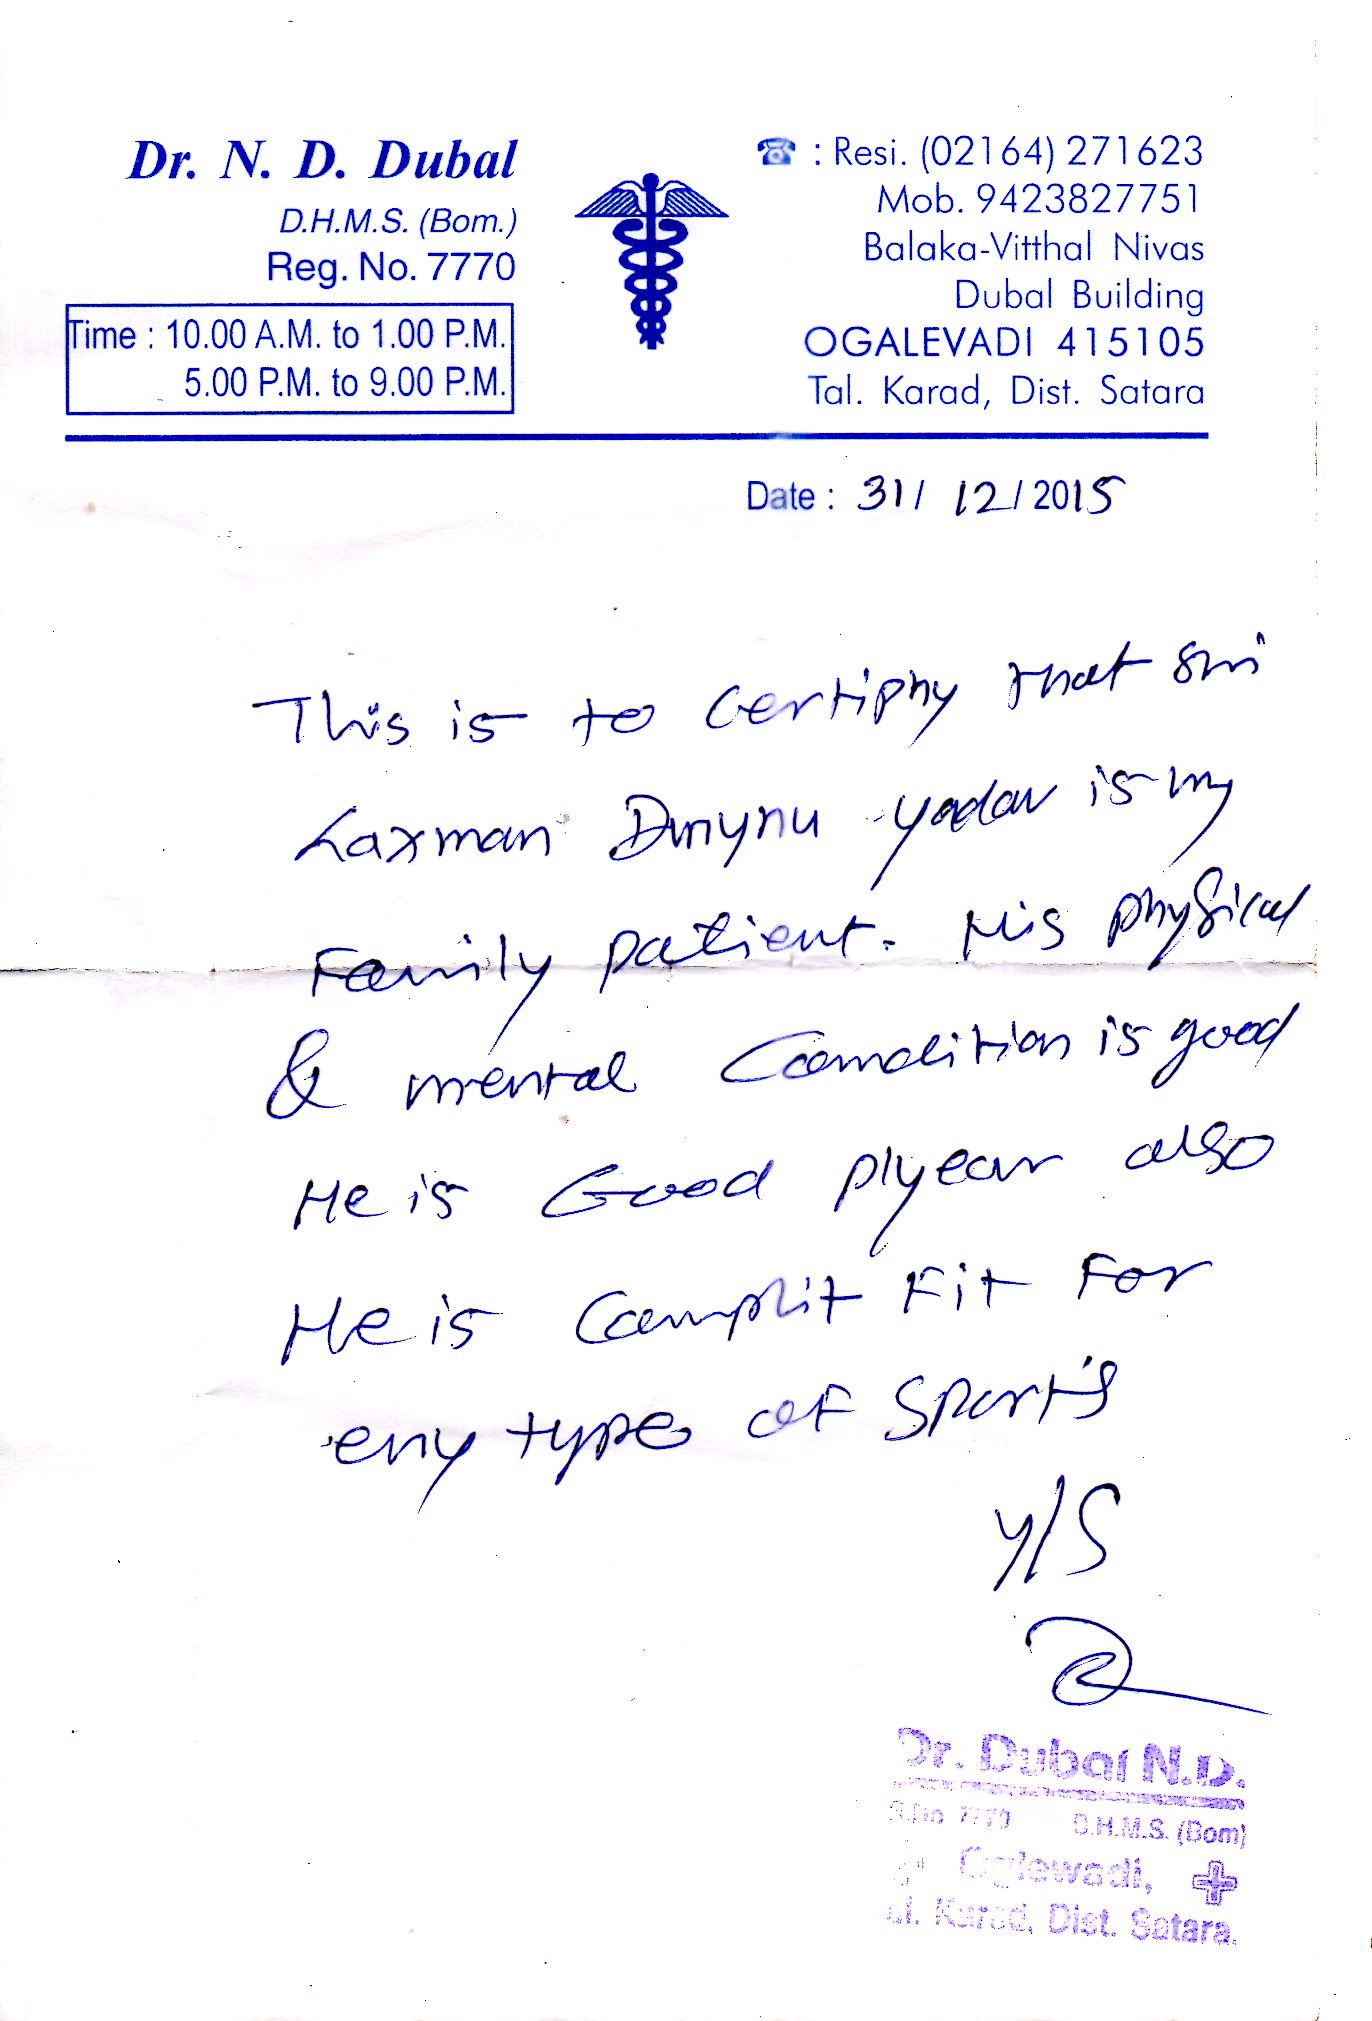 Dr. N. D. Dubal
D.H.M.S. (Bom.)
Reg. No. 7770
Time : 10.00 A.M. to 1.00 P.M.
5.00 P.M. to 9.00 P.M.
☎ : Resi. (02164) 271623
Mob. 9423827751
Balaka-Vitthal Nivas
Dubal Building
OGALEVADI 415105
Tal. Karad, Dist. Satara
Date : 31/ 12/ 2015
This is to certiphy that Shri
Laxman yadav is my
Family patient. His physical
& mental Condition is good
He is Good plyear also
He is Complit Fit For
eny type of Sport's
y/S
Dr. Dubal N.D.
7770 D.H.M.S. (Bom)
Oglewadi,
Karad, Dist. Satara.